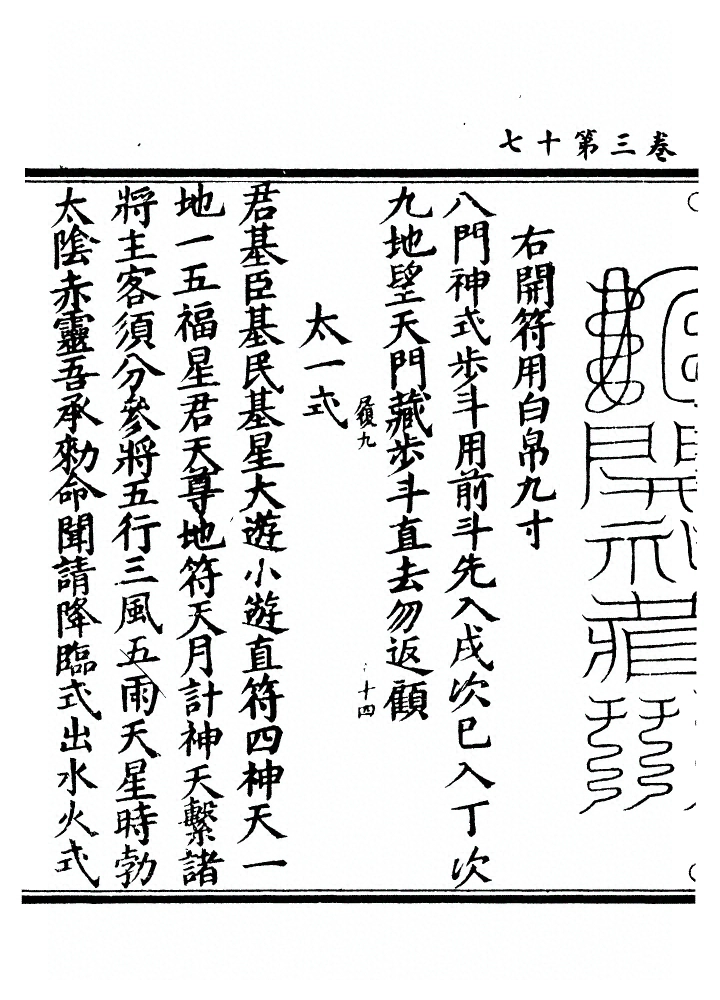 卷三第十七
右開符用白帛九寸
八門神式步斗用前斗先入戌次巳入丁次
九地望天門藏步斗直去勿返顧
九
十四
太一式
君基臣基民基星大遊小遊直符四神天一
地一五福星君天尊地符天月計神天繫諸
將主客須分參將五行三風五雨天星時勃
太陰赤靈吾承勑命聞請降臨式出水火式